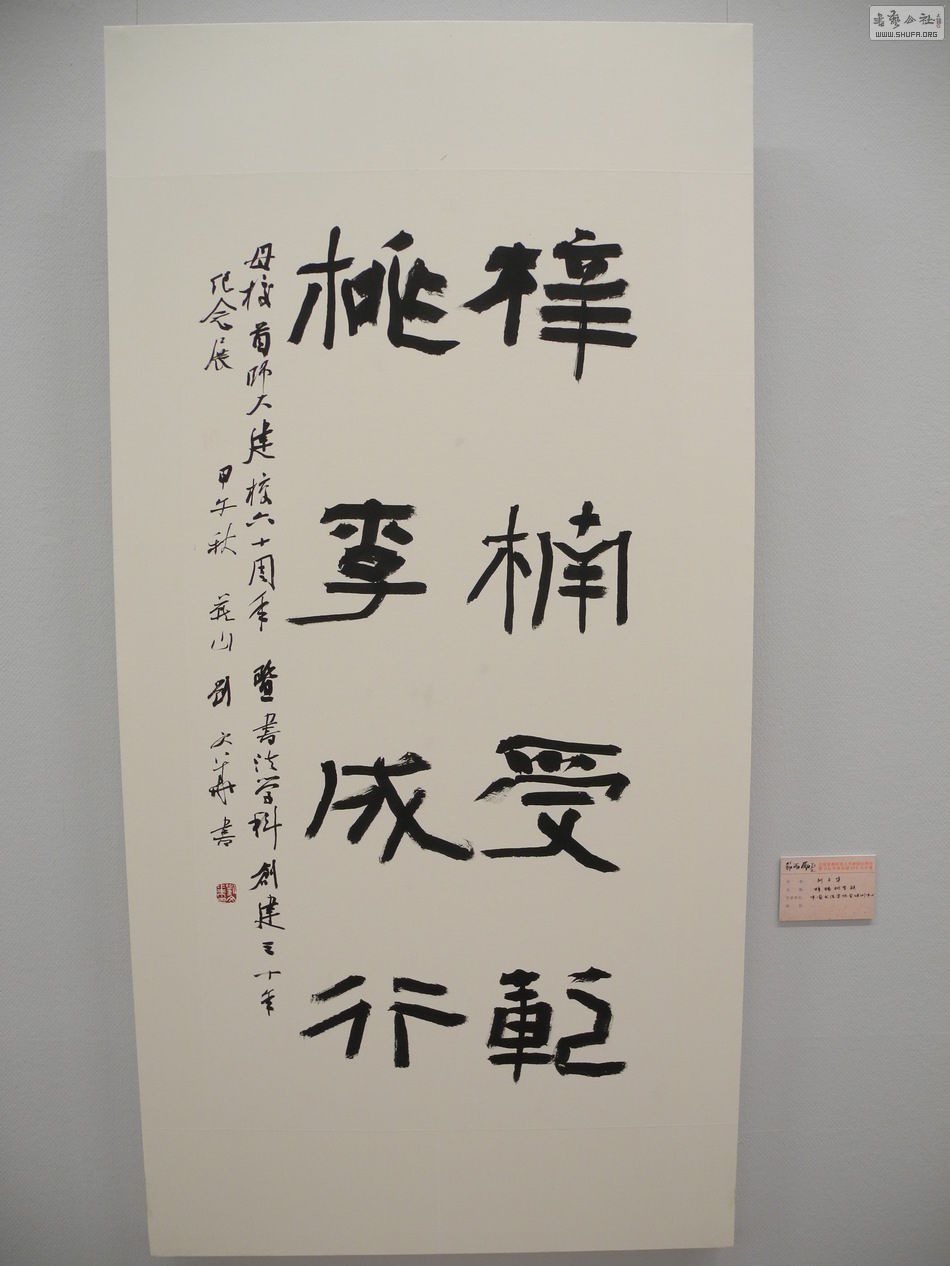 梓楠受範
桃李成行
母校首師大建校六十周年暨書法学科創建三十年
纪念展
甲午秋 燕山 劉文華書
書藝公社
WWW.SHUFA.ORG